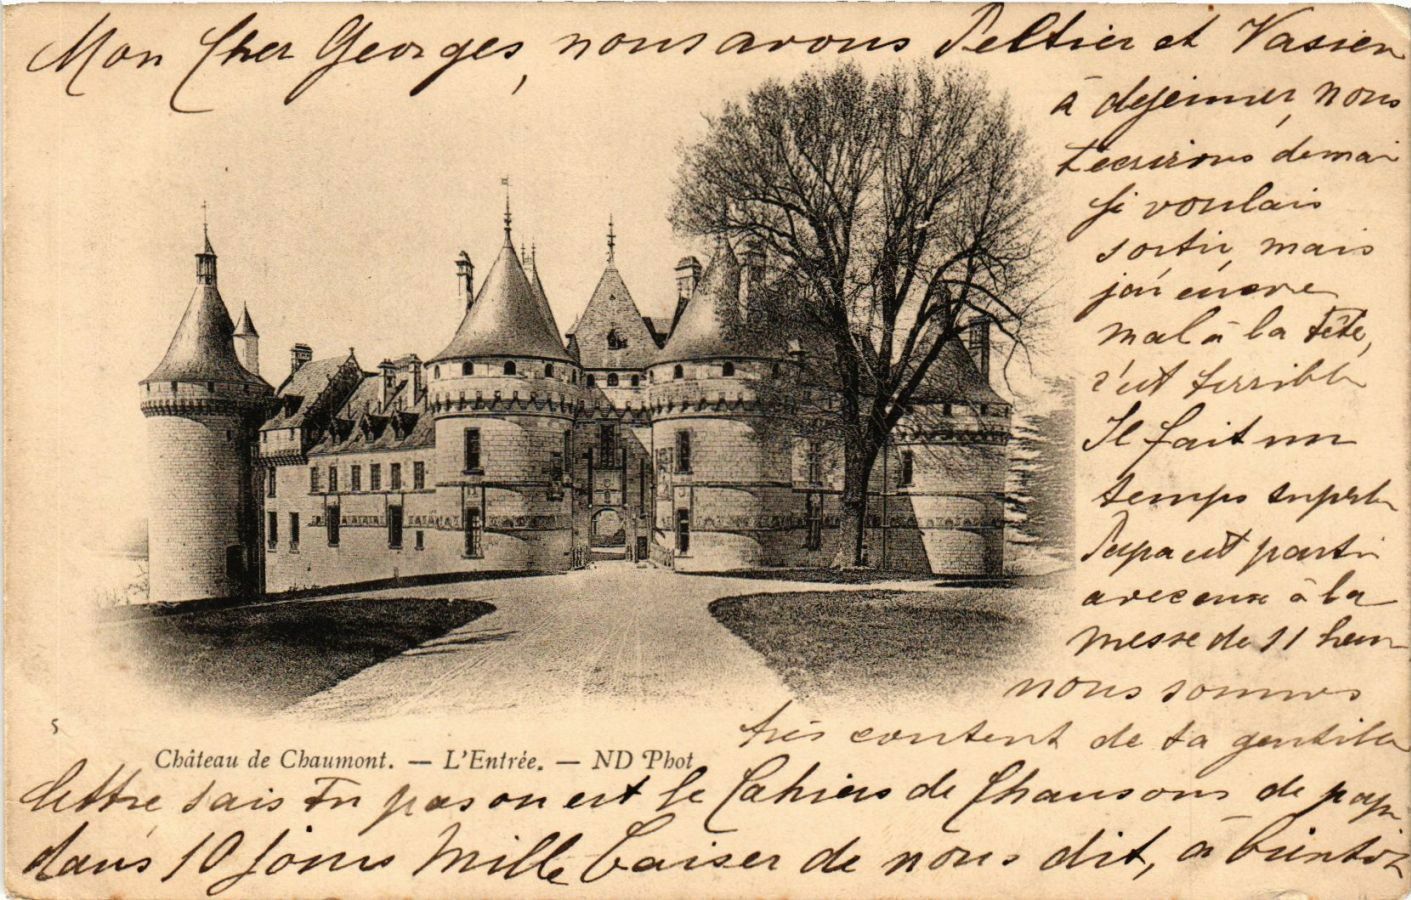 Mon Cher Georges, nous avons Peltier et Vasien
à dejeinner, nous
t'ecrirons demai
je voulais
sortir, mais
j'ai encore
mal à la Tête,
c'est terrible
Il fait un
temps superbe
Papa est parti
avec eux à la
messe de 11 heur
nous sommes
très content de ta gentille
5
Château de Chaumont. — L'Entrée. — ND Phot
lettre sais Tu pas on est le Cahiers de Chansons de papa
dans 10 jours Mille baiser de nous dit, à bientôt